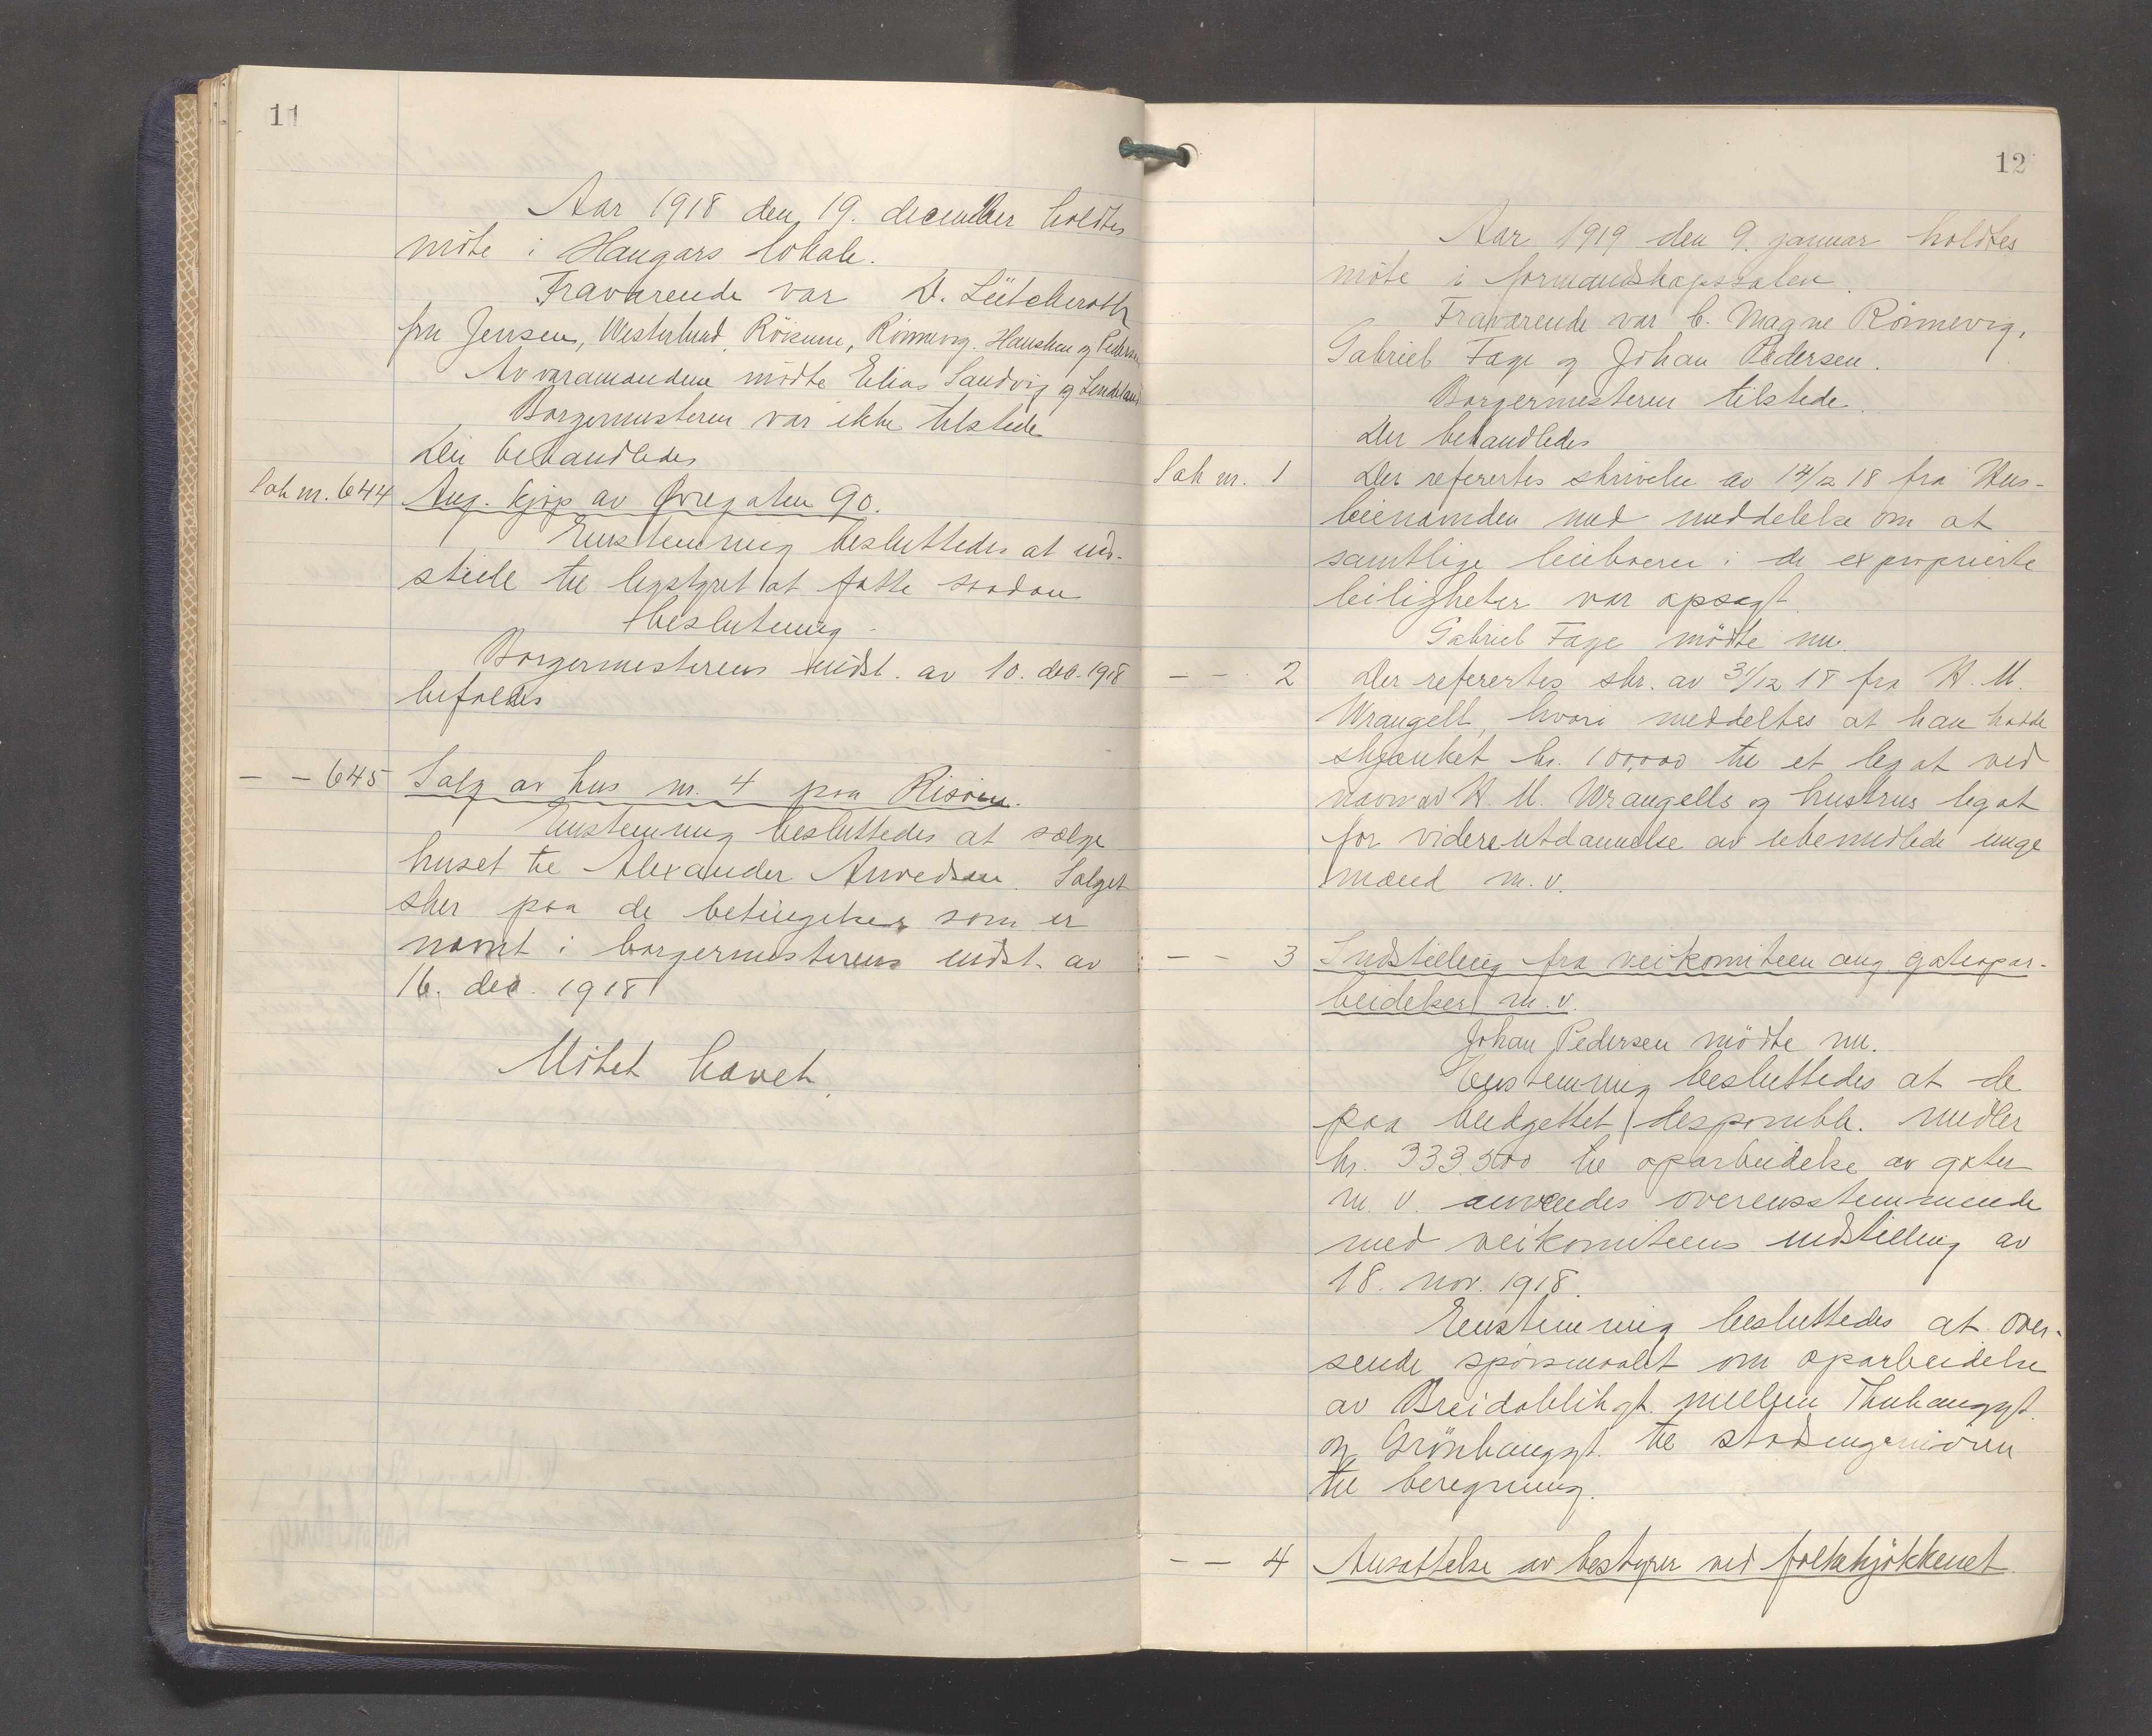 11
Aar 1918 den 19. december holdtes
möte i Haugars lokale.
Fraværende var D. Lütcherath
fru Jensen, Westerlund, Röisum, Rönnevig, Hausken og Pedersen
Av varamændene mödte Elias Sandvig og Lindeland
Borgermesteren var ikke tilstede
Der behandledes
Sak nr. 644 Ang. kjöp av Övregaten 90.
Enstemmig besluttedes at ind-
stille til bystyret at fatte saadan
beslutning
Borgermesterens indst. av 10. dec. 1918
befoldes
— — 645 Salg av hus nr. 4 paa Risöen.
Enstemmig besluttedes at sælge
huset til Alexander Anvedsen. Salget
sker paa de betingelser som er
nævnt i borgermesterens indst. av
16. dec. 1918
Mötet hævet.
12
Aar 1919 den 9. januar holdtes
möte i formandskapssalen.
Fraværende var C. Magne Rönnevig,
Gabriel Fage og Johan Pedersen.
Borgermesteren tilstede.
Der behandledes
Sak nr. 1 Der referertes skrivelse av 14/12 18 fra Hus-
leienævnden med meddelelse om at
samtlige leieboere i de exproprierte
leiligheter var opsagt.
Gabriel Fage mödte nu.
— — 2 Der referertes skr. av 31/12 18 fra H. M.
Wrangell, hvori meddeltes at han hadde
skjænket kr. 100,000 til et legat ved
navn av H. M. Wrangells og hustrus legat
for videre utdannelse av ubemidlede unge
mænd m. v.
— — 3 Indstilling fra veikomiteen ang. gateopar-
beidelser m. v.
Johan Pedersen mödte nu.
Enstemmig besluttedes at de
paa budgettet disponible. midler
kr. 333.500 til oparbeidelse av gater
m. v. anvendes overensstemmende
med veikomiteens indstilling av
18. nov. 1918.
Enstemmig besluttedes at over-
sende spörsmaalet om oparbeidelse
av Breidablikgt. mellem Thuhauggt.
og Grönhauggt. til stadsingeniören
til beregning.
— — 4 Ansættelse av bestyrer ved folkekjökkenet.